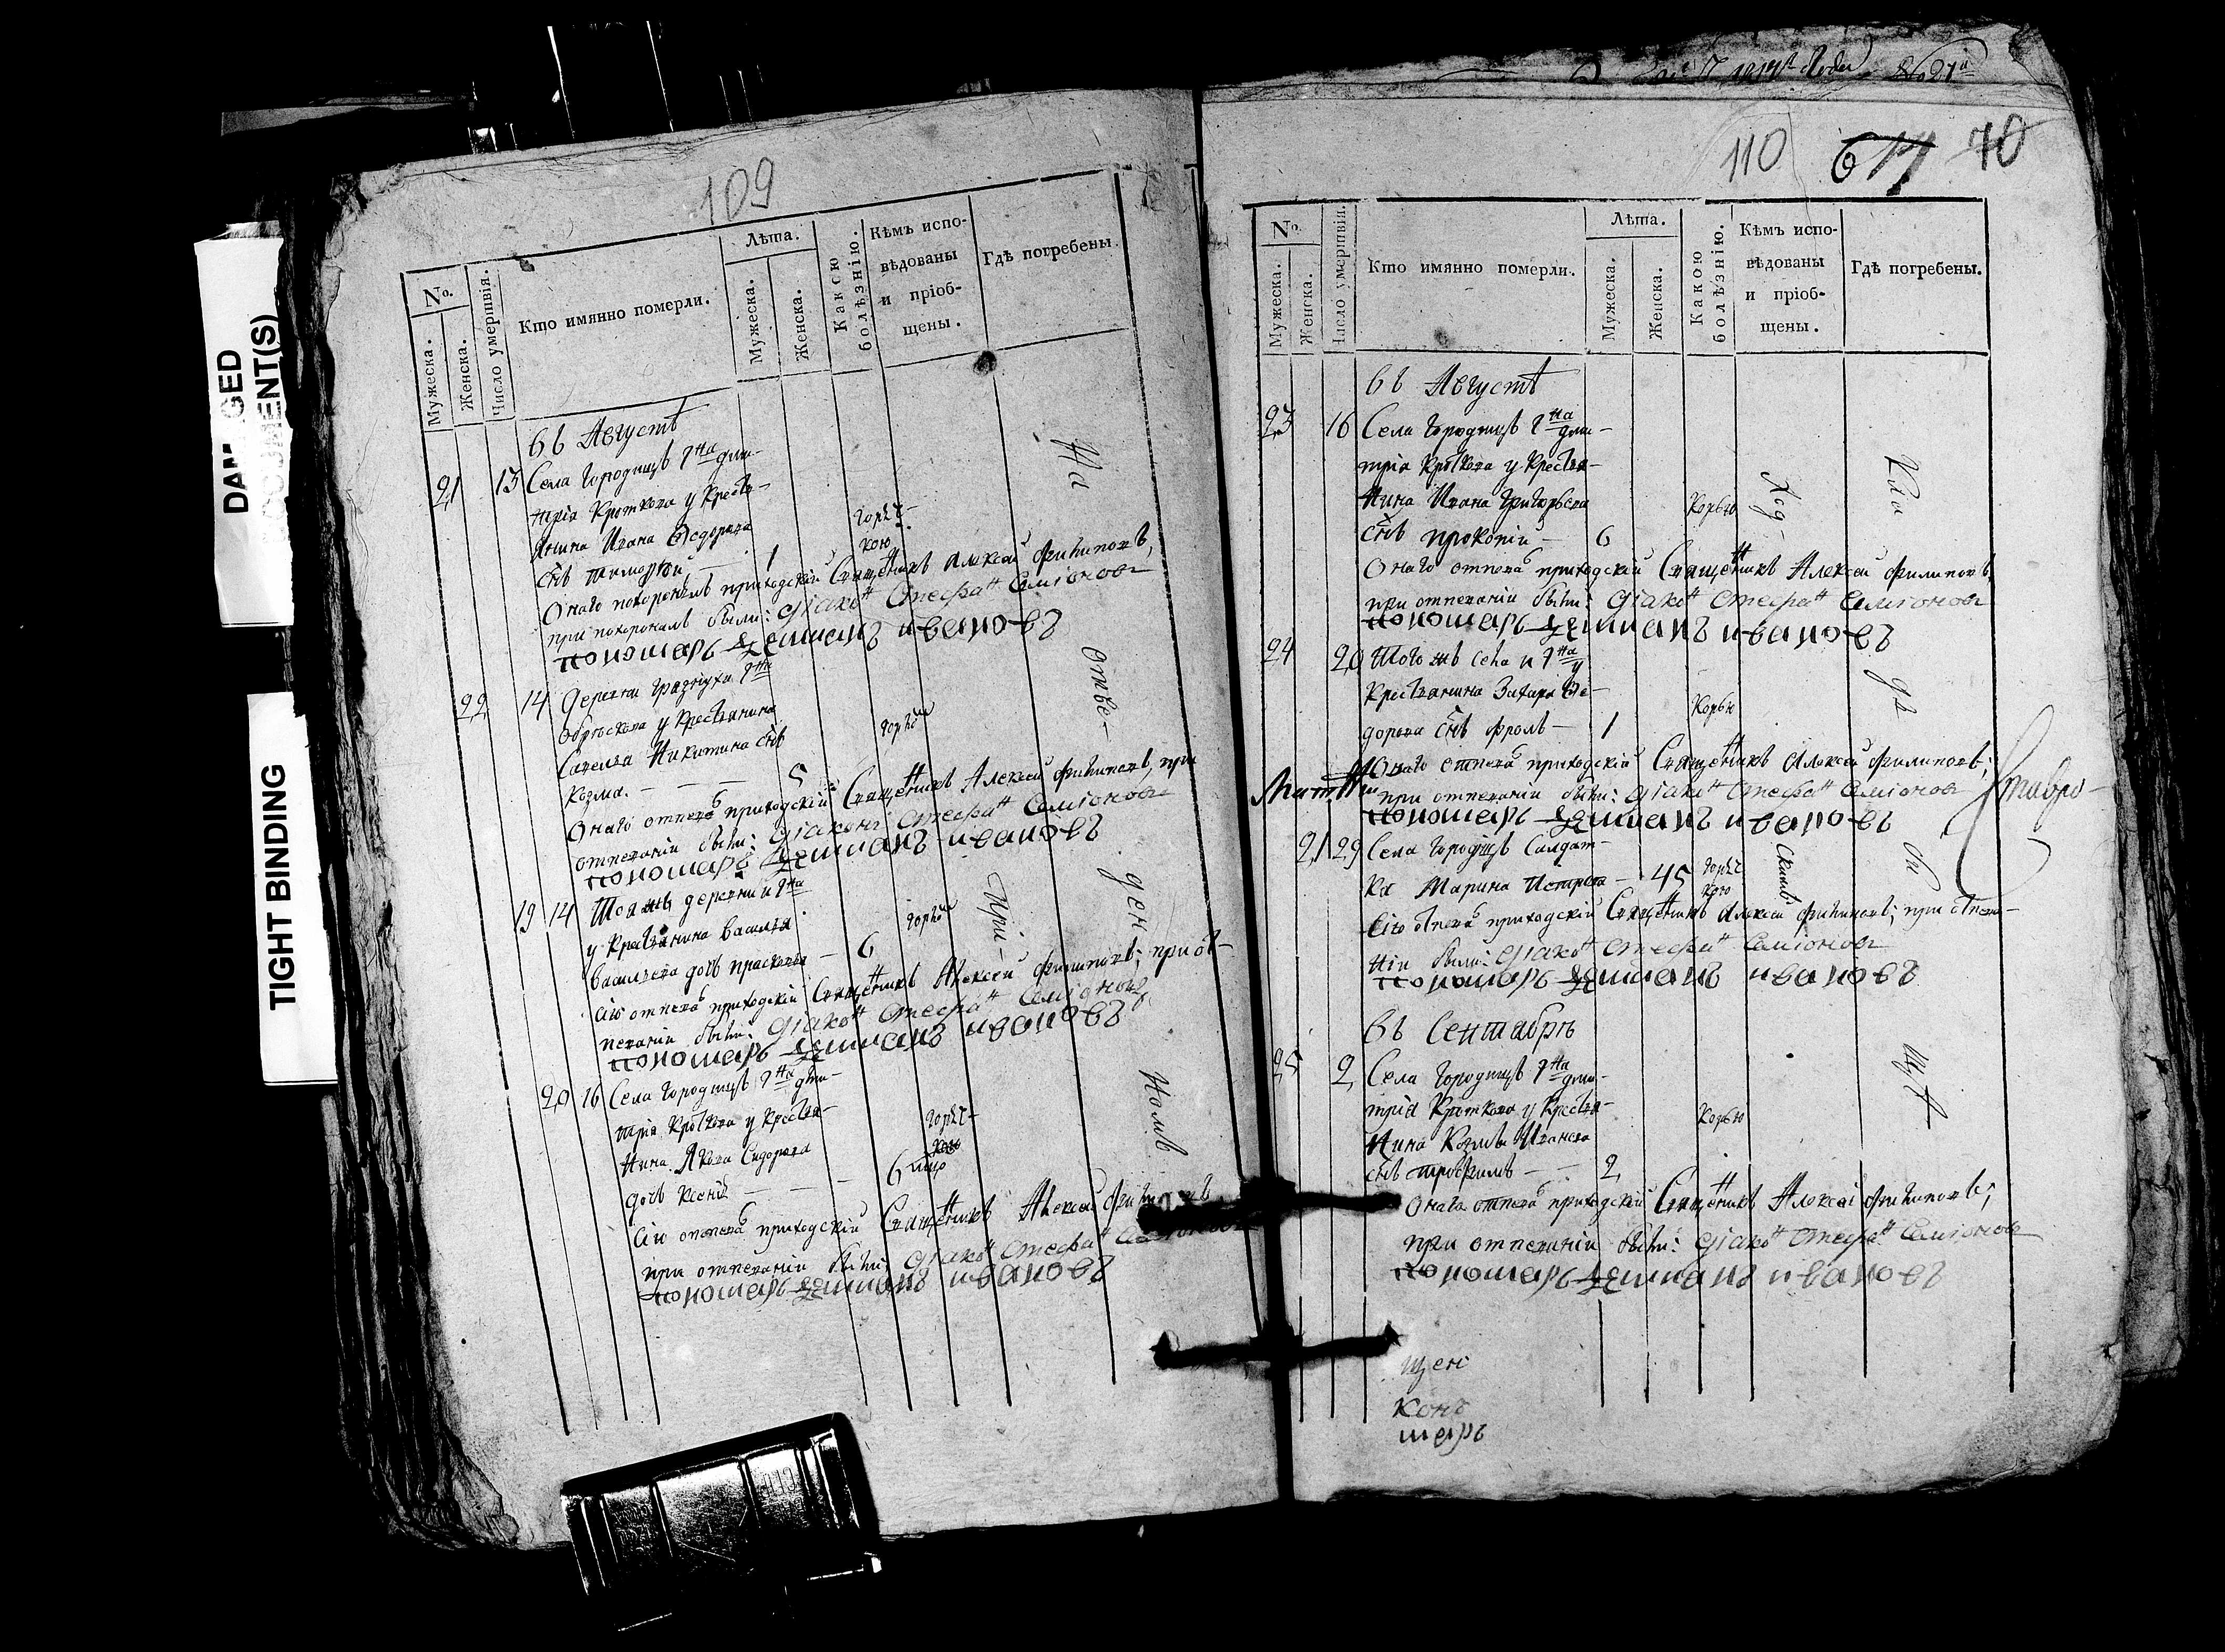 DAMAGED
DOCUMENT(S)
TIGHT BINDING
109
No.
Мужеска.
Женска.
Число умершвія.
Кто имянно померли.
Лѣта.
Мужеска.
Женска.
Какою болѣзнію.
Кѣмъ испо-
вѣдованы
и пріоб-
щены.
Гдѣ погребены.
Въ Августѣ
21 13 Села Городищъ Гна дми-
трія Кроткова у кресть-
янина Ивана Ѳедорова
снъ тимоѳей — 1 горяч-
кою
Онаго похоронилъ приходскій Священникъ Алексѣй Филиповъ,
при похоронахъ были: діаконъ Стефанъ Семіоновъ
пономарь Іванов
22 14 деревни Гна
у крестьянина
Савелья Никитина снъ
козма. — — 5
Онаго отпевалъ приходскій Священникъ Алексѣй Филиповъ, при
отпеваніи были: діаконъ Стефанъ Семіоновъ
пономарь ивановъ
19 14 Тояжъ деревни и Гна
у крестьянина Василья
Васильева дочь прасковья — 6
Сію отпевалъ приходскій Священникъ Алексѣй Филиповъ; при от-
певаніи были: діаконъ Стефанъ Семіоновъ
пономарь ивановъ
20 16 Села Городищъ Гна дми-
трія Кроткова у крестья-
нина Якова Сидорова
дочь Ксенія — — — 6 горяч-
кою
Сію отпевалъ приходскій Священникъ Алексѣй Филиповъ
при отпеваніи были: діаконъ Стефанъ Семіоновъ
пономарь ивановъ
На
отве-
ден
номъ
При
110 70
No.
Мужеска.
Женска.
Число умершвія.
Кто имянно померли.
Лѣта.
Мужеска.
Женска.
Какою болѣзнію.
Кѣмъ испо-
вѣдованы
и пріоб-
щены.
Гдѣ погребены.
Въ Августѣ
23 16 Села Городищъ Гна дми-
трія Кроткова у крестья-
нина Ивана Григорьева Корью
снъ прокопій — 6
Онаго отпевалъ приходскій Священникъ Алексѣй Филиповъ,
при отпеваніи были: діаконъ Стефанъ Семіоновъ
пономарь ивановъ
24 20 Тогожъ села и Гна у
Крестьянина Захара Ѳе- Корью
дорова снъ Фролъ — 1
Онаго отпевалъ приходскій Священникъ Алексѣй Филиповъ;
при отпеваніи были: діаконъ Стефанъ Семіоновъ
пономарь ивановъ
21 29 Села Городищъ Салдат-
ка Марина Петрова — 45 горяч-
кою
Сію отпевалъ приходскій Священникъ Алексѣй Филиповъ; при отпева-
ніи были: діаконъ Стефанъ Семіоновъ
пономарь ивановъ
Въ Сентябрѣ
25 2 Села Городищъ Гна дми-
трія Кроткова у крестья- Корью
нина Козмы Иванова
снъ трофимъ — — 2
Онаго отпевалъ приходскій Священникъ Алексѣй Филиповъ;
при отпеваніи были: діаконъ Стефанъ Семіоновъ
пономарь ивановъ
ход
скимъ
Кла
дъ
би
щѣ
Ставро-
щен
конъ
марь